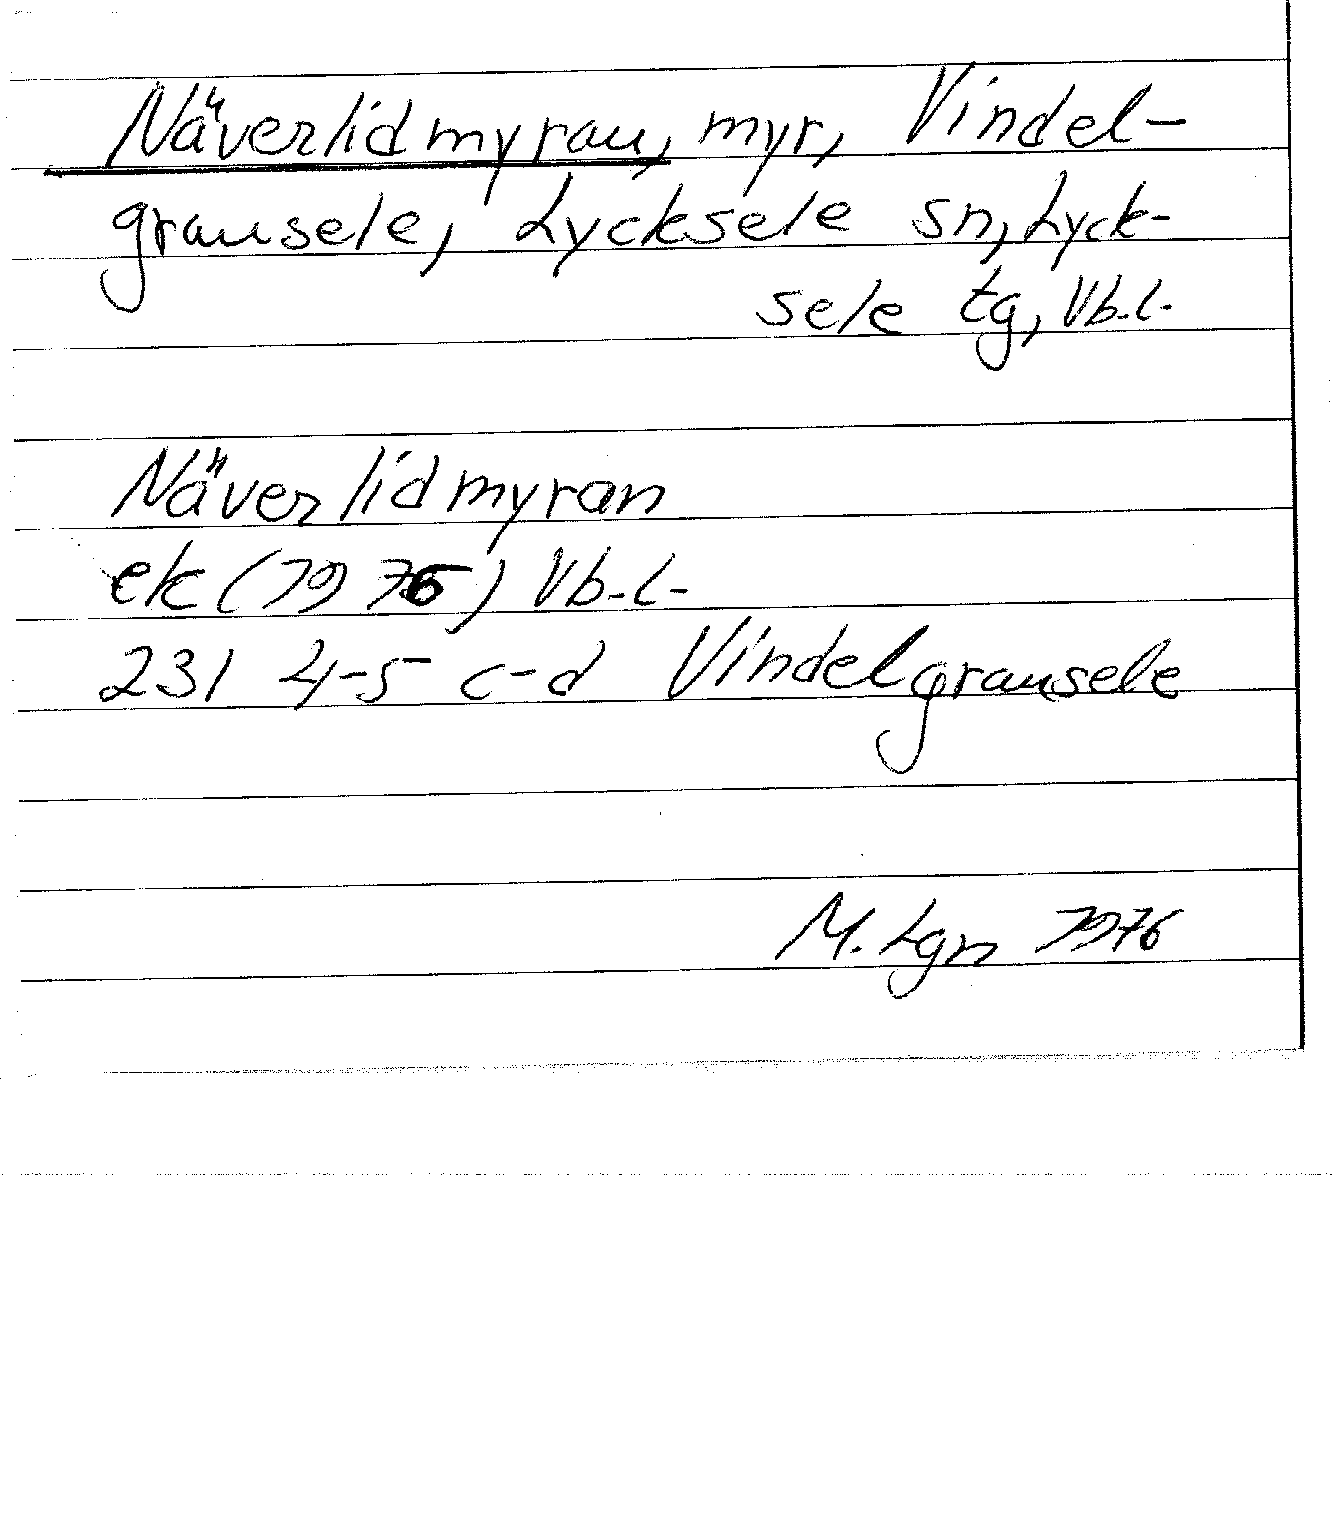 Näverlidmyran, myr, Vindel-
gransele, Lycksele sn, Lyck-
sele tg, Vb.l.
Näverlidmyran
ek (1976) Vb.l.
23I 4-5 c-d Vindelgransele
M. Lgn 1976